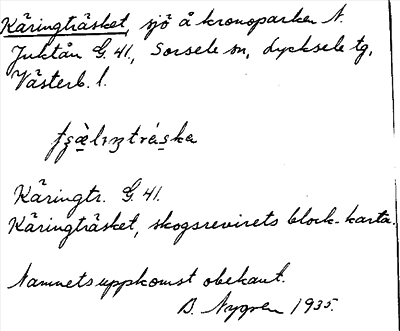 Käringträsket, sjö å kronoparken N.
Juktån G. 41., Sorsele sn, Lycksele tg,
Västerb. l.
Käringtr. G. 41.
Käringträsket, skogsrevirets block-karta.
Namnets uppkomst obekant.
B. Nygren 1935.